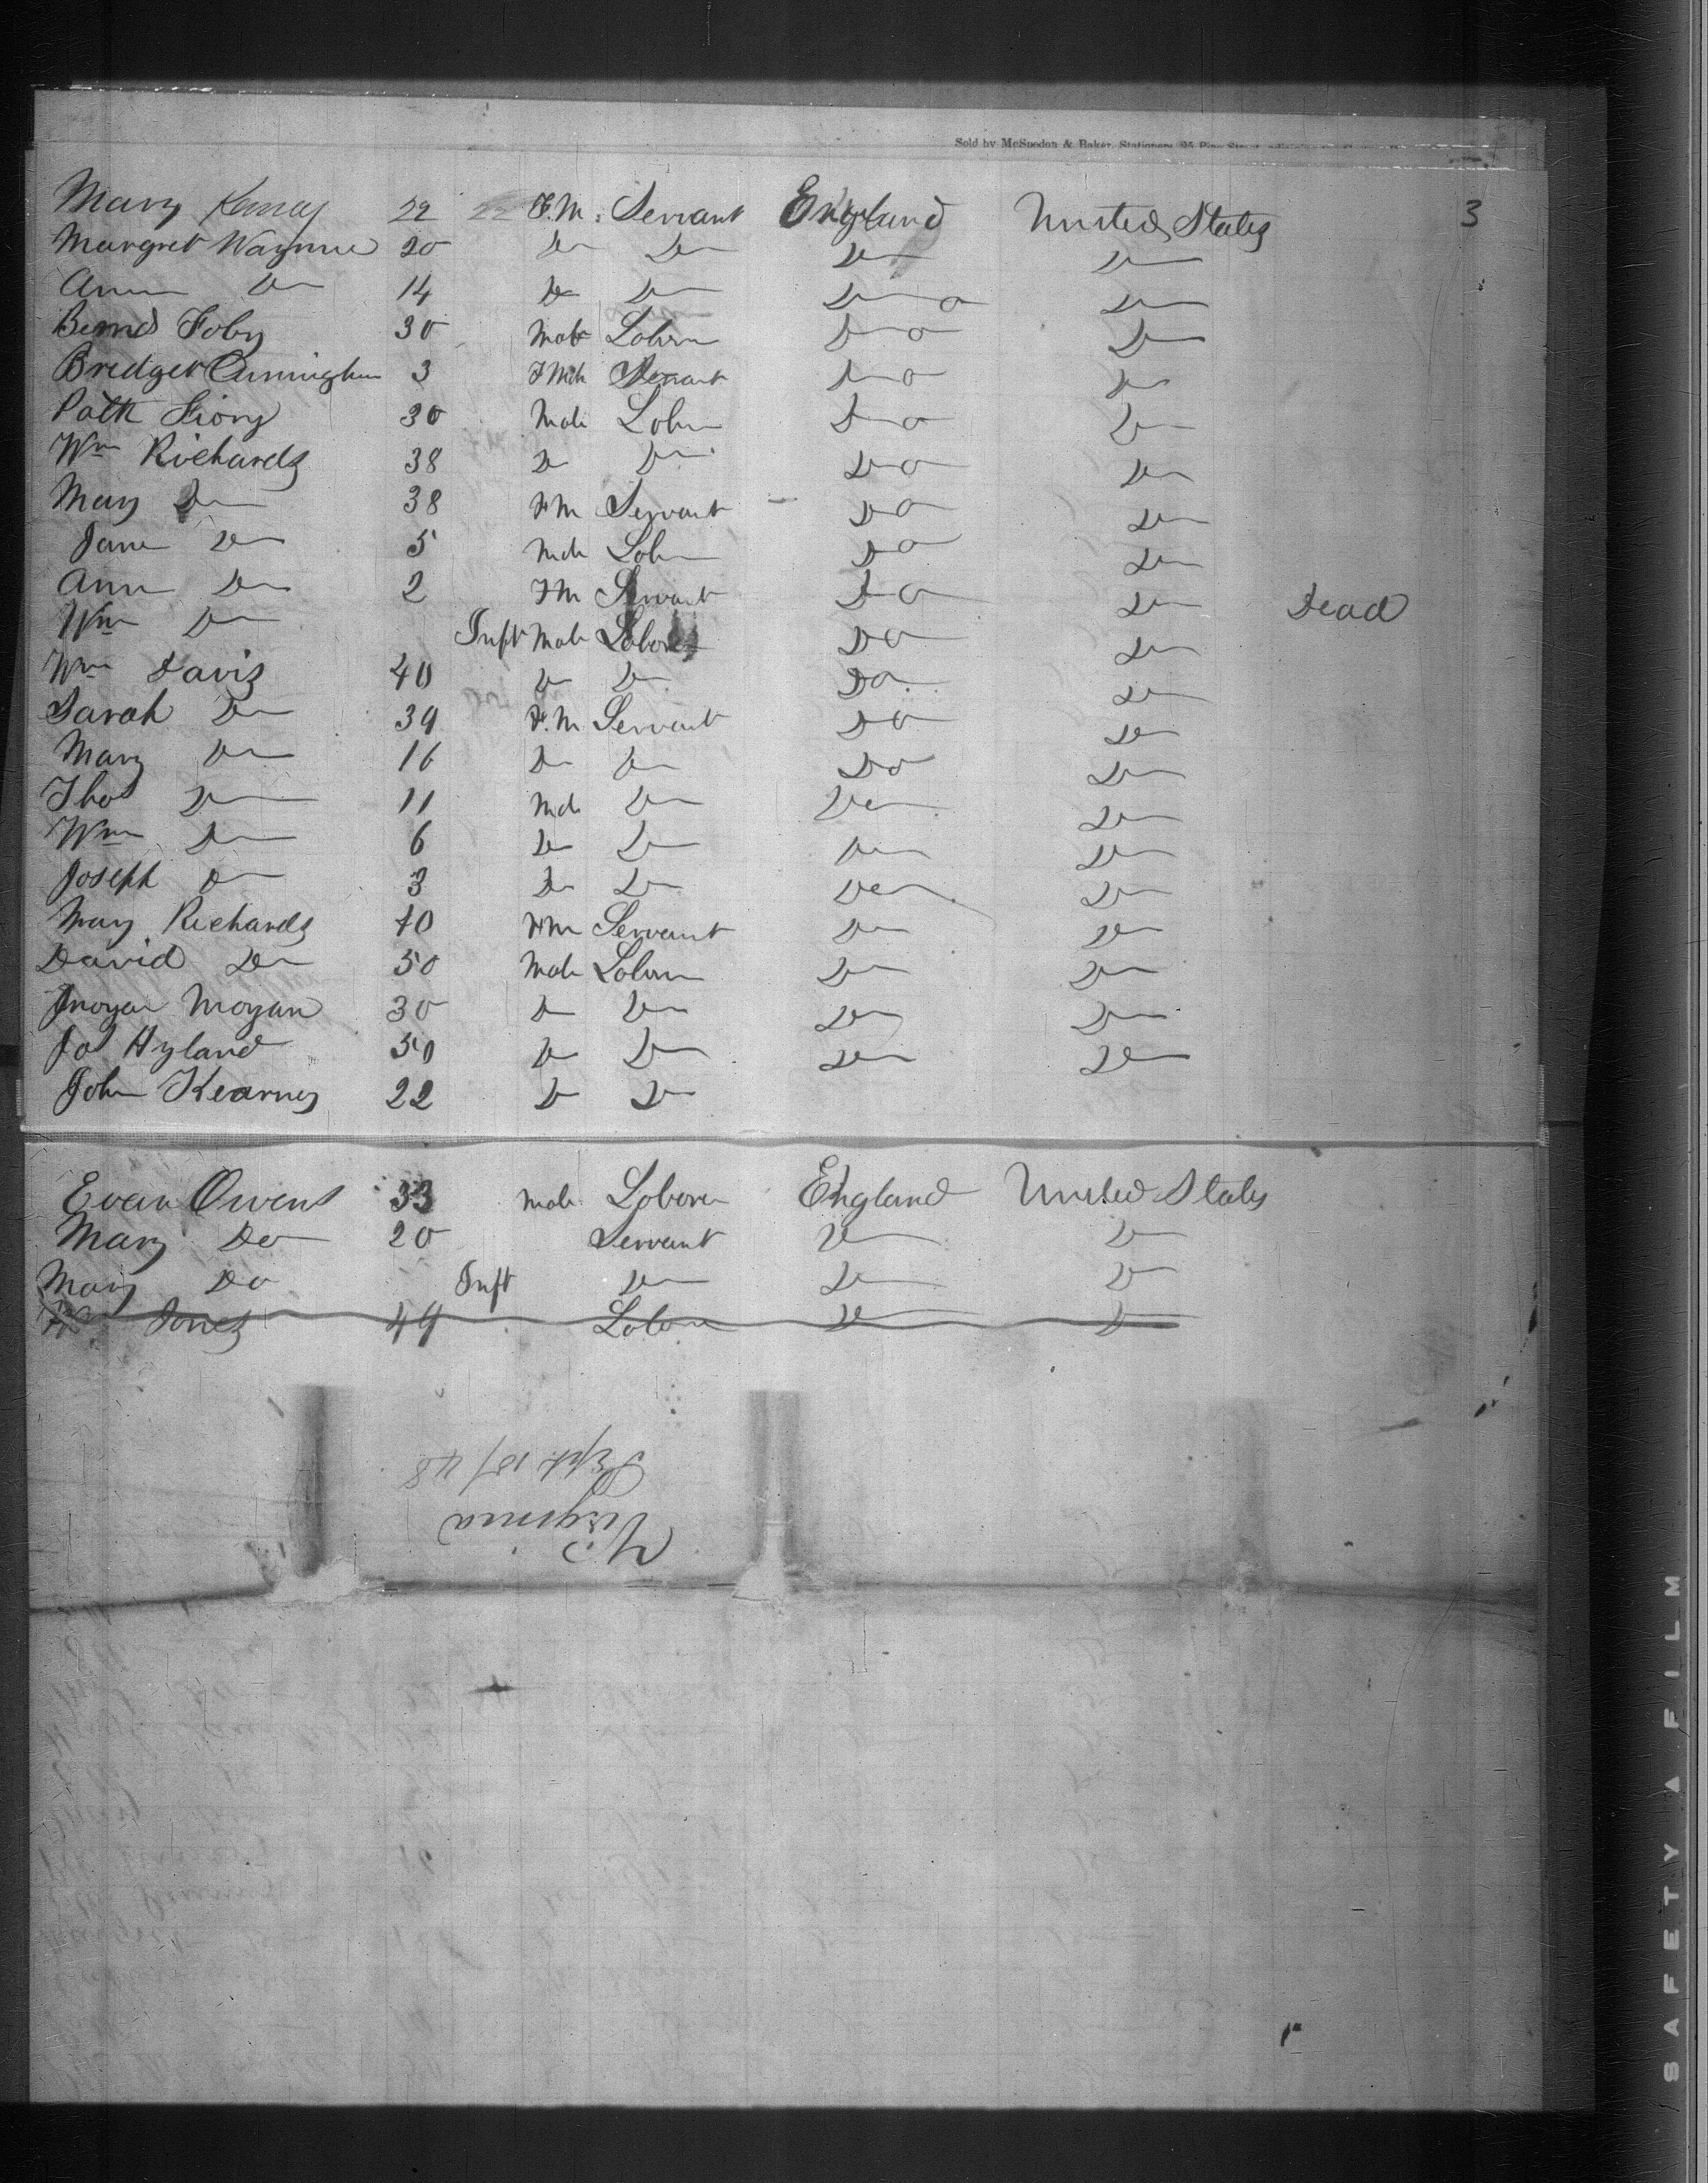 Sold by McSpedon & Baker, Stationers, 25 Pine Street
3
Mary 22 22 F.M. Servant England United States
Margret Waynne 20 Do Do Do Do
Ann Do 14 Do Do Do Do
Bernd Foby 30 Male Labr Do Do
Bridget Cunningham 3 Servant Do Do
Patk 30 Male Labr Do Do
Wm Richards 38 Do Do Do Do
Mary Do 38 FM Servant Do Do
Jane Do 5 Male Labr Do Do
Ann Do 2 FM Servant Do Do Dead
Wm Do Inft Male Laborer Do Do
Wm Davis 40 Do Do Do Do
Sarah Do 39 F.M Servant Do Do
Mary Do 16 Do Do Do Do
Thos Do 11 Male Do Do Do
Wm Do 6 Do Do Do Do
Joseph Do 3 Do Do Do Do
Mary Richards 40 FM Servant Do Do
David Do 50 Male Labr Do Do
Morgan 30 Do Do Do Do
Jos Hyland 50 Do Do Do Do
John Kearney 22 Do Do
Evan Owens 33 Male Laborer England United States
Mary Do 20 Servant Do Do
Mary Do Inft Do Do Do
Jones 49 Labor Do Do
Virginia
Sept 18/48
SAFETY FILM